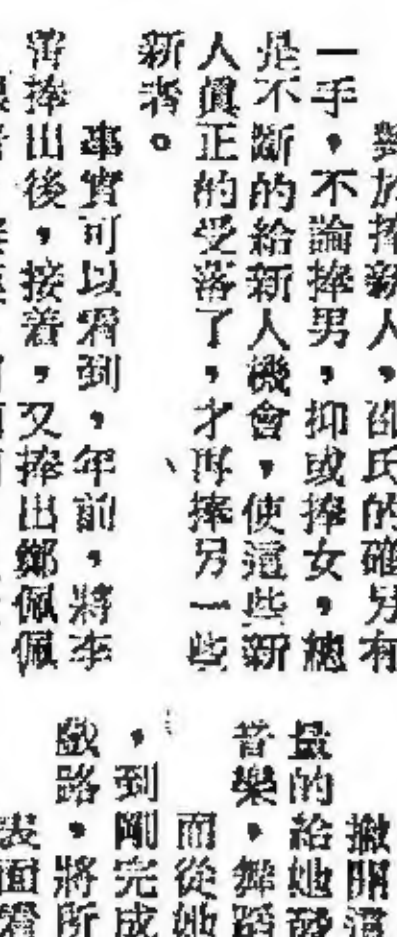 對於捧新人，邵氏的確另有
一手，不論捧男，抑或捧女，總
是不斷的給新人機會，使這些新
人眞正的受落了，才再捧另一些
新者。
事實可以看到，年前，將李
菁捧出後，接着，又捧出鄭佩佩
撇開這
量的給她
音樂，舞蹈
而從她
，到剛完成
戲路，將所
表面看